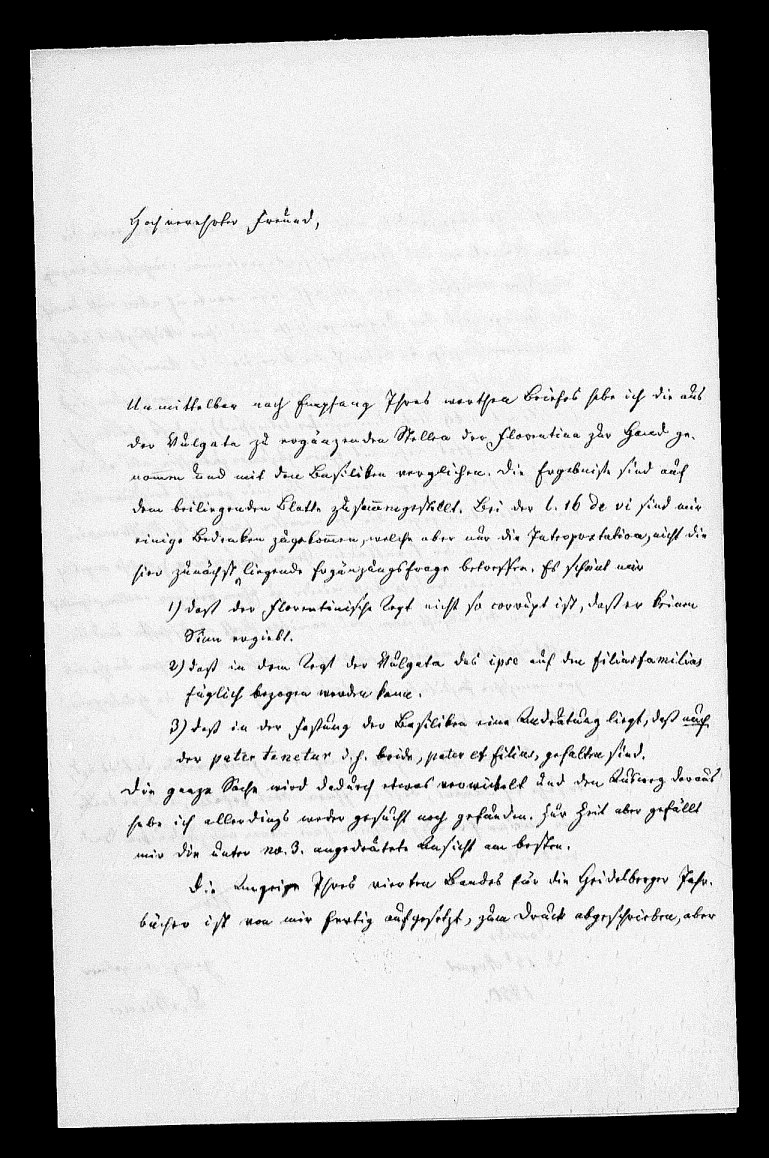 Hochverehrter Freund,
Unmittelbar nach Empfang Ihres werthen Briefes habe ich die aus
der Vulgata zu ergänzenden Stellen der Florentina zur Hand ge-
nommen und mit den Basiliken verglichen. Die Ergebnisse sind auf
dem beiliegenden Blatte zusammengestellt. Bei der l. 16 de vi sind mir
einige Bedenken zugekommen, welche aber nur die Interpretation, nicht die
hier zunächst liegende Ergänzungsfrage betreffen. Es scheint mir
1) daß der Florentinische Text nicht so corrupt ist, daß er keinen
Sinn ergiebt.
2) daß in dem Text der Vulgata das ipse auf den filiusfamilias
füglich bezogen werden kann.
3) daß in der Fassung der Basiliken eine Andeutung liegt, daß auch
der pater tenetur d.h. beide, pater et filius, gehalten sind.
Die ganze Sache wird dadurch etwas verwickelt und den Ausweg daraus
habe ich allerdings weder gesucht noch gefunden. Zur Zeit aber gefällt
mir die unter no. 3. angedeutete Ansicht am besten.
Die Anzeige Ihres vierten Bandes für die Heidelberger Jahr-
bücher ist von mir fertig aufgesetzt, zum Druck abgeschrieben, aber